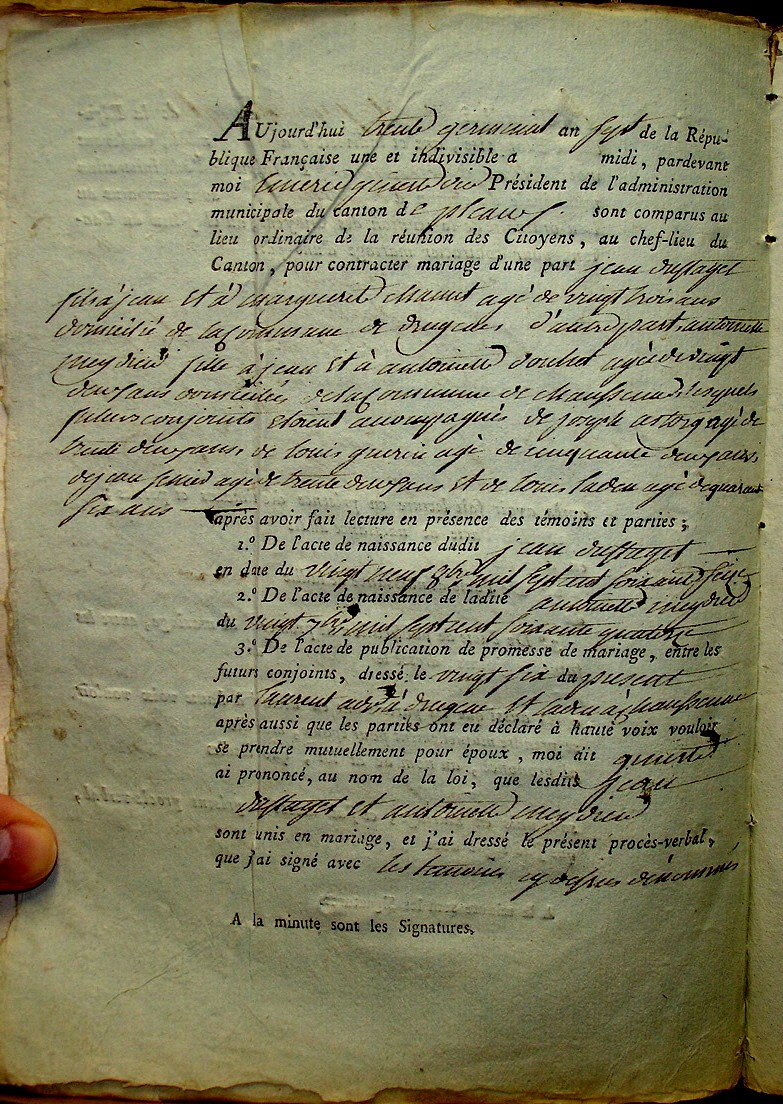 AUjourd'hui trente germinal an sept de la Répu-
blique Française une et indivisible a midi, pardevant
moi Président de l'administration
municipale du canton de pleaux sont comparus au
lieu ordinaire de la réunion des Citoyens, au chef-lieu du
Canton, pour contracter mariage d'une part jean
fils à jean et à marguerite agé de vingt trois ans
domicilié de la commune de drugeac d'autre part antoinette
meydieu fille à jean et à antoinette agée de vingt
deux ans domiciliée de la commune de lesquels
futurs conjoints etoient accompagnés de joseph astorg agé de
trente deux ans, de louis guerin agé de cinquante deux ans,
de jean agé de trente deux ans et de louis agé de quarante
six ans après avoir fait lecture en présence des témoins et parties;
1.° De l'acte de naissance dudit jean
en date du vingt neuf 8bre mil sept cent soixante seize
2.° De l'acte de naissance de ladite antoinette meydieu
du vingt 7bre mil sept cent soixante quatorze
3.° De l'acte de publication de promesse de mariage, entre les
futurs conjoints, dressé le vingt six du present
par laurent à drugeac et
après aussi que les parties ont eu déclaré à haute voix vouloir
se prendre mutuellement pour époux, moi dit
ai prononcé, au nom de la loi, que lesdits jean
et antoinette meydieu
sont unis en mariage, et j'ai dressé le présent procès-verbal,
que j'ai signé avec les temoins cy dessus denommés
A la minute sont les Signatures.